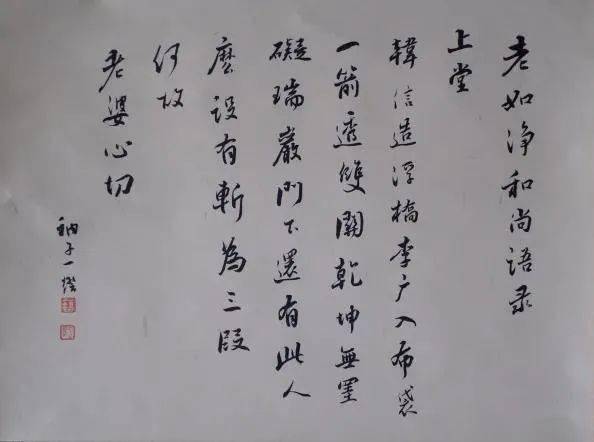 老如净和尚语录
上堂
韓信造浮橋李广入布袋
一箭透雙關乾坤無罣
礙瑞巖門下還有此人
麽设有斬為三段
何故
老婆心切
衲子一